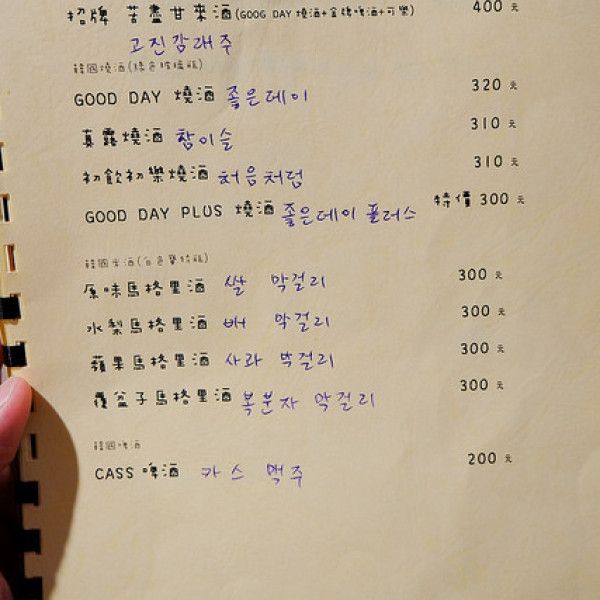 招牌 苦盡甘來酒(GOOG DAY 燒酒+金牌啤酒+可樂) 400 元
고진감래주
韓國燒酒(綠色玻璃瓶)
GOOD DAY 燒酒 좋은데이 320 元
真露燒酒 참이슬 310 元
初飲初樂燒酒 처음처럼 310 元
GOOD DAY PLUS 燒酒 좋은데이 플러스 特價 300 元
韓國米酒(白色寶特瓶)
原味馬格里酒 쌀 막걸리 300 元
水梨馬格里酒 배 막걸리 300 元
蘋果馬格里酒 사과 막걸리 300 元
覆盆子馬格里酒 복분자 막걸리 300 元
韓國啤酒
CASS 啤酒 카스 맥주 200 元